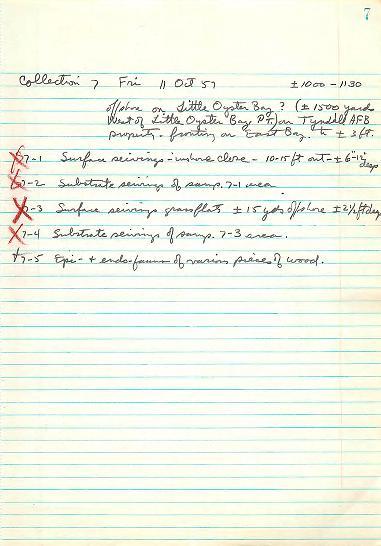 7
Collection 7 Fri 11 Oct 57 ±1000-1130
offshore on Little Oyster Bay ? (±1500 yards
west of Little Oyster Bay Pt.) on Tyndall AFB
property - fronting on East Bay. to ± 3 ft.
7-1 Surface seinings - inshore close - 10-15 ft out - ± 6"-12" deep
7-2 Substrate seining of samp. 7-1 area
7-3 Surface seinings grassflats ± 15 yds offshore ± 2½ ft deep
7-4 Substrate seinings of samp. 7-3 area.
7-5 Epi- + endo-fauna of various pieces of wood.